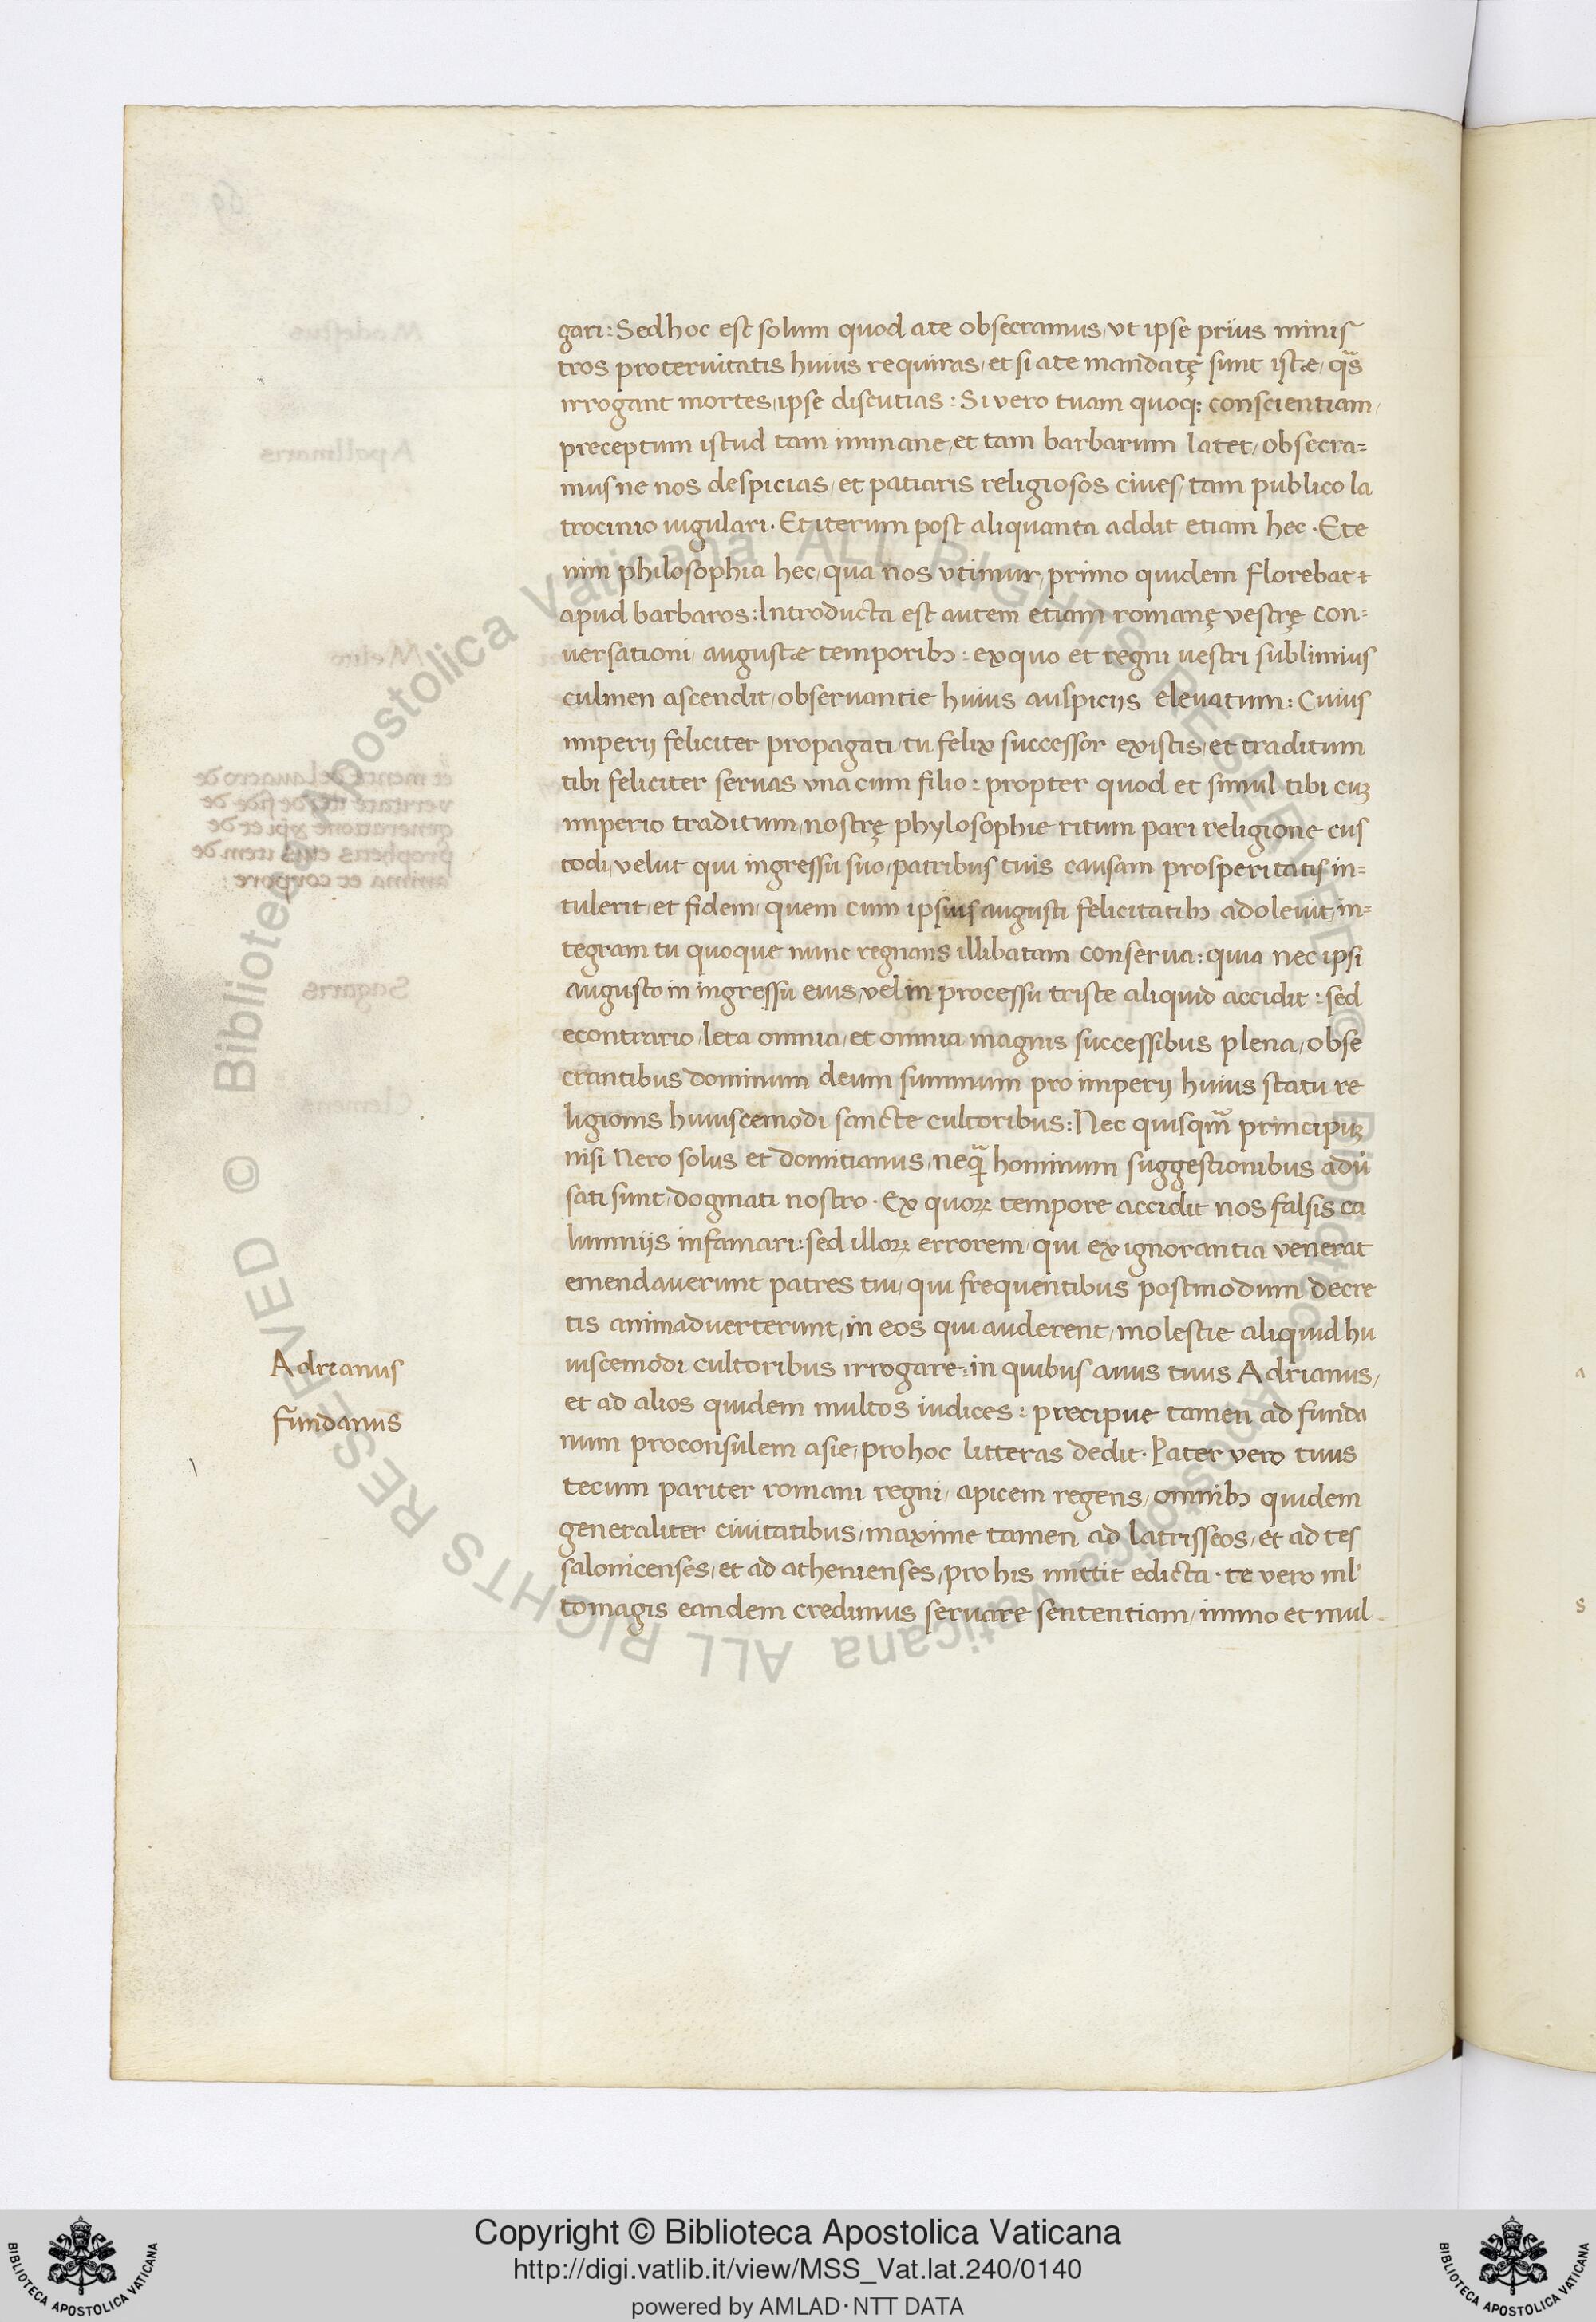 gari: Sed hoc est solum quod a te obsecramus, ut ipse prius minis
tros proteruitatis huius requiras, et si a te mandatę sunt istæ, qͣs
irrogant mortes, ipse discutias: Si vero tuam quoq; conscientiam,
preceptum istud tam immane, et tam barbarum latet, obsecra=
mus ne nos despicias, et patiaris religiosos ciues, tam publico la
trocinio iugulari. Et iterum post aliquanta addit etiam hec. Ete
nim philosophia hec, qua nos vtimur, primo quidem florebat
apud barbaros: Introducta est autem etiam romanę vestrę con=
uersationi, augustæ temporibꝫ: ex quo et regni uestri sublimius
culmen ascendit, obseruantie huius auspicijs eleuatum: Cuius
imperij feliciter propagati, tu felix successor existis, et traditum
tibi feliciter seruas vna cum filio: propter quod et simul tibi cuꝫ
imperio traditum, nostrę phylosophie ritum pari religione cus
todi, velut qui ingressu suo, patribus tuis causam prosperitatis in=
tulerit, et fidem, quem cum ipsius augusti felicitatibꝫ adoleuit, in=
tegram tu quoque nunc regnans illibatam conserua: quia nec ipsi
augusto in ingressu eius, vel in processu triste aliquid accidit: sed
econtrario, leta omnia, et omnia magnis successibus plena, obse
crantibus dominum deum summum pro imperij huius statu re
ligionis huiuscemodi sancte cultoribus: Nec quisqm̃ principuꝫ
nisi Nero solus et domitianus, neqͣ hominum suggestionibus adù
sati sunt, dogmati nostro. Ex quoꝝ tempore accidit nos falsis ca
lumnijs infamari: sed illoꝝ errorem, qui ex ignorantia venerat
emendauerunt patres tui, qui frequentibus postmodum decre
tis animaduerterunt, in eos qui auderent, molestie aliquid hu
iuscemodi cultoribus irrogare: in quibus auus tuus Adrianus,
et ad alios quidem multos iudices: precipue tamen ad funda
num proconsulem asie, pro hoc litteras dedit. Pater vero tuus
tecum pariter romani regni, apicem regens, omnibꝫ quidem
generaliter ciuitatibus, maxime tamen ad latrisseos, et ad tes
salonicenses, et ad athenienses, pro his mittit edicta. te vero ml'
tomagis eandem credimus seruare sententiam, immo et mul
Adrianus
fundanus
Copyright © Biblioteca Apostolica Vaticana
http://digi.vatlib.it/view/MSS_Vat.lat.240/0140
powered by AMLAD·NTT DATA
BIBLIOTECA APOSTOLICA VATICANA
BIBLIOTECA APOSTOLICA VATICANA
© Biblioteca Apostolica Vaticana ALL RIGHTS RESERVED
© Biblioteca Apostolica Vaticana ALL RIGHTS RESERVED